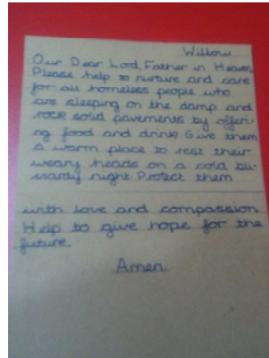 Willow
Our Dear Lord, Father in Heaven,
Please help to nurture and care
for all homeless people who
are sleeping on the damp and
rock solid pavements by offeri-
ng food and drink Give them
a warm place to rest their
weary heads on a cold bli-
zzardy night Protect them
with love and compassion
Help to give hope for the
future.
Amen